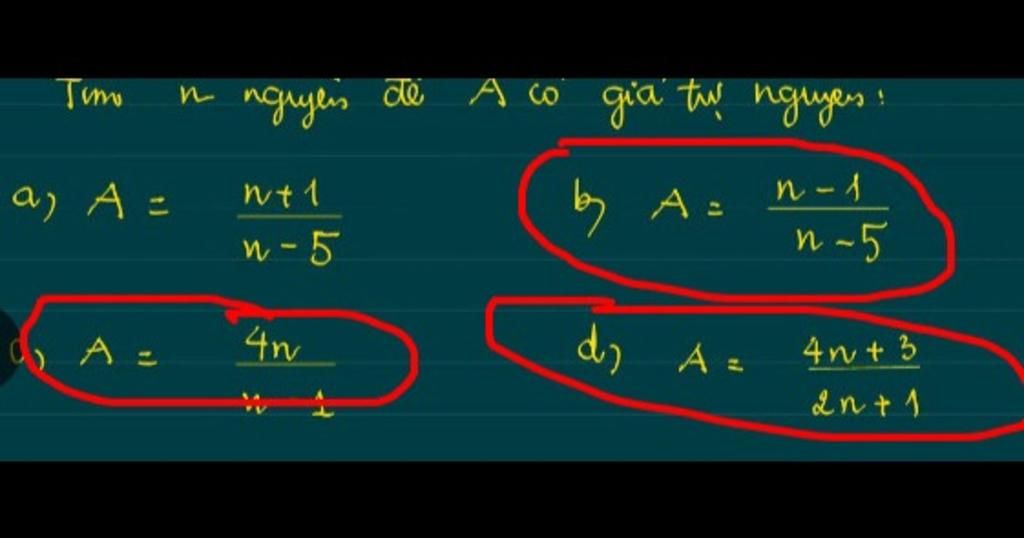 Tìm n nguyên để A có giá trị nguyên:
a) A = n+1 / n-5
b) A = n-1 / n-5
c) A = 4n / n-1
d) A = 4n+3 / 2n+1